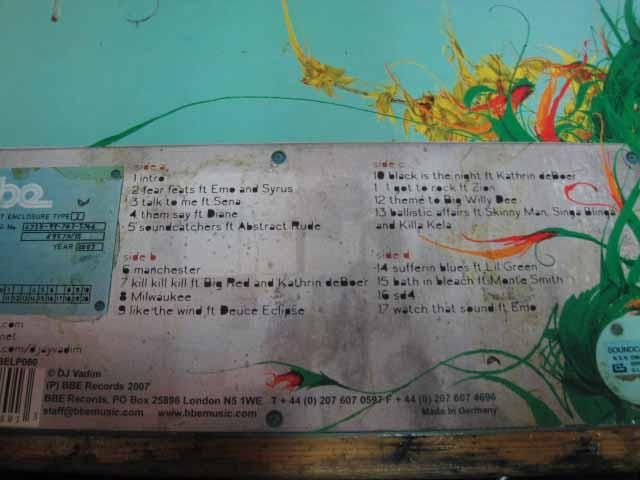 side a
1 intro
2 fear feats ft Emo and Syrus
3 talk to me ft Sena
4 them say ft Diane
5 soundcatchers ft Abstract Rude
side b
6 manchester
7 kill kill kill ft Big Red and Kathrin deBoer
8 Milwaukee
9 like the wind ft Deuce Eclipse
side c
10 black is the night ft Kathrin deBoer
1 I got to rock ft Zion
12 theme to Big Willy Dee
13 ballistic affairs ft Skinny Man, Singa Blinga
and Killa Kela
side d
14 sufferin blues ft Lil Green
15 bath in bleach ft Monte Smith
16 sd4
17 watch that sound ft Emo
be
T ENCLOSURE TYPE 2
No.
YEAR 2007
.com
net
.com/djayvadim
BELP080
© DJ Vadim
(P) BBE Records 2007
BBE Records, PO Box 25896 London N5 1WE T + 44 (0) 207 607 0597 F + 44 (0) 207 607 4696
staff@bbemusic.com www.bbemusic.com Made in Germany
SOUNDC